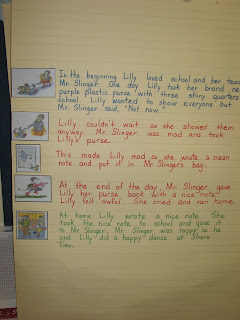 In the beginning Lilly loved school and her teac
Mr. Slinger. One day Lilly took her brand ne
purple plastic purse with three shiny quarters
school. Lilly wanted to show everyone but
Mr. Slinger said, "Not now."
Lilly couldn't wait so she showed them
anyway. Mr. Slinger was mad and took
Lilly's purse.
This made Lilly mad so she wrote a mean
note and put it in Mr. Slingers bag.
At the end of the day, Mr. Slinger gave
Lilly her purse back with a nice note.
Lilly felt awful. She cried and ran home.
At home Lilly wrote a nice note. She
took the nice note to school and gave it
to Mr. Slinger. Mr. Slinger was happy so he
and Lilly did a happy dance at Share
Time.